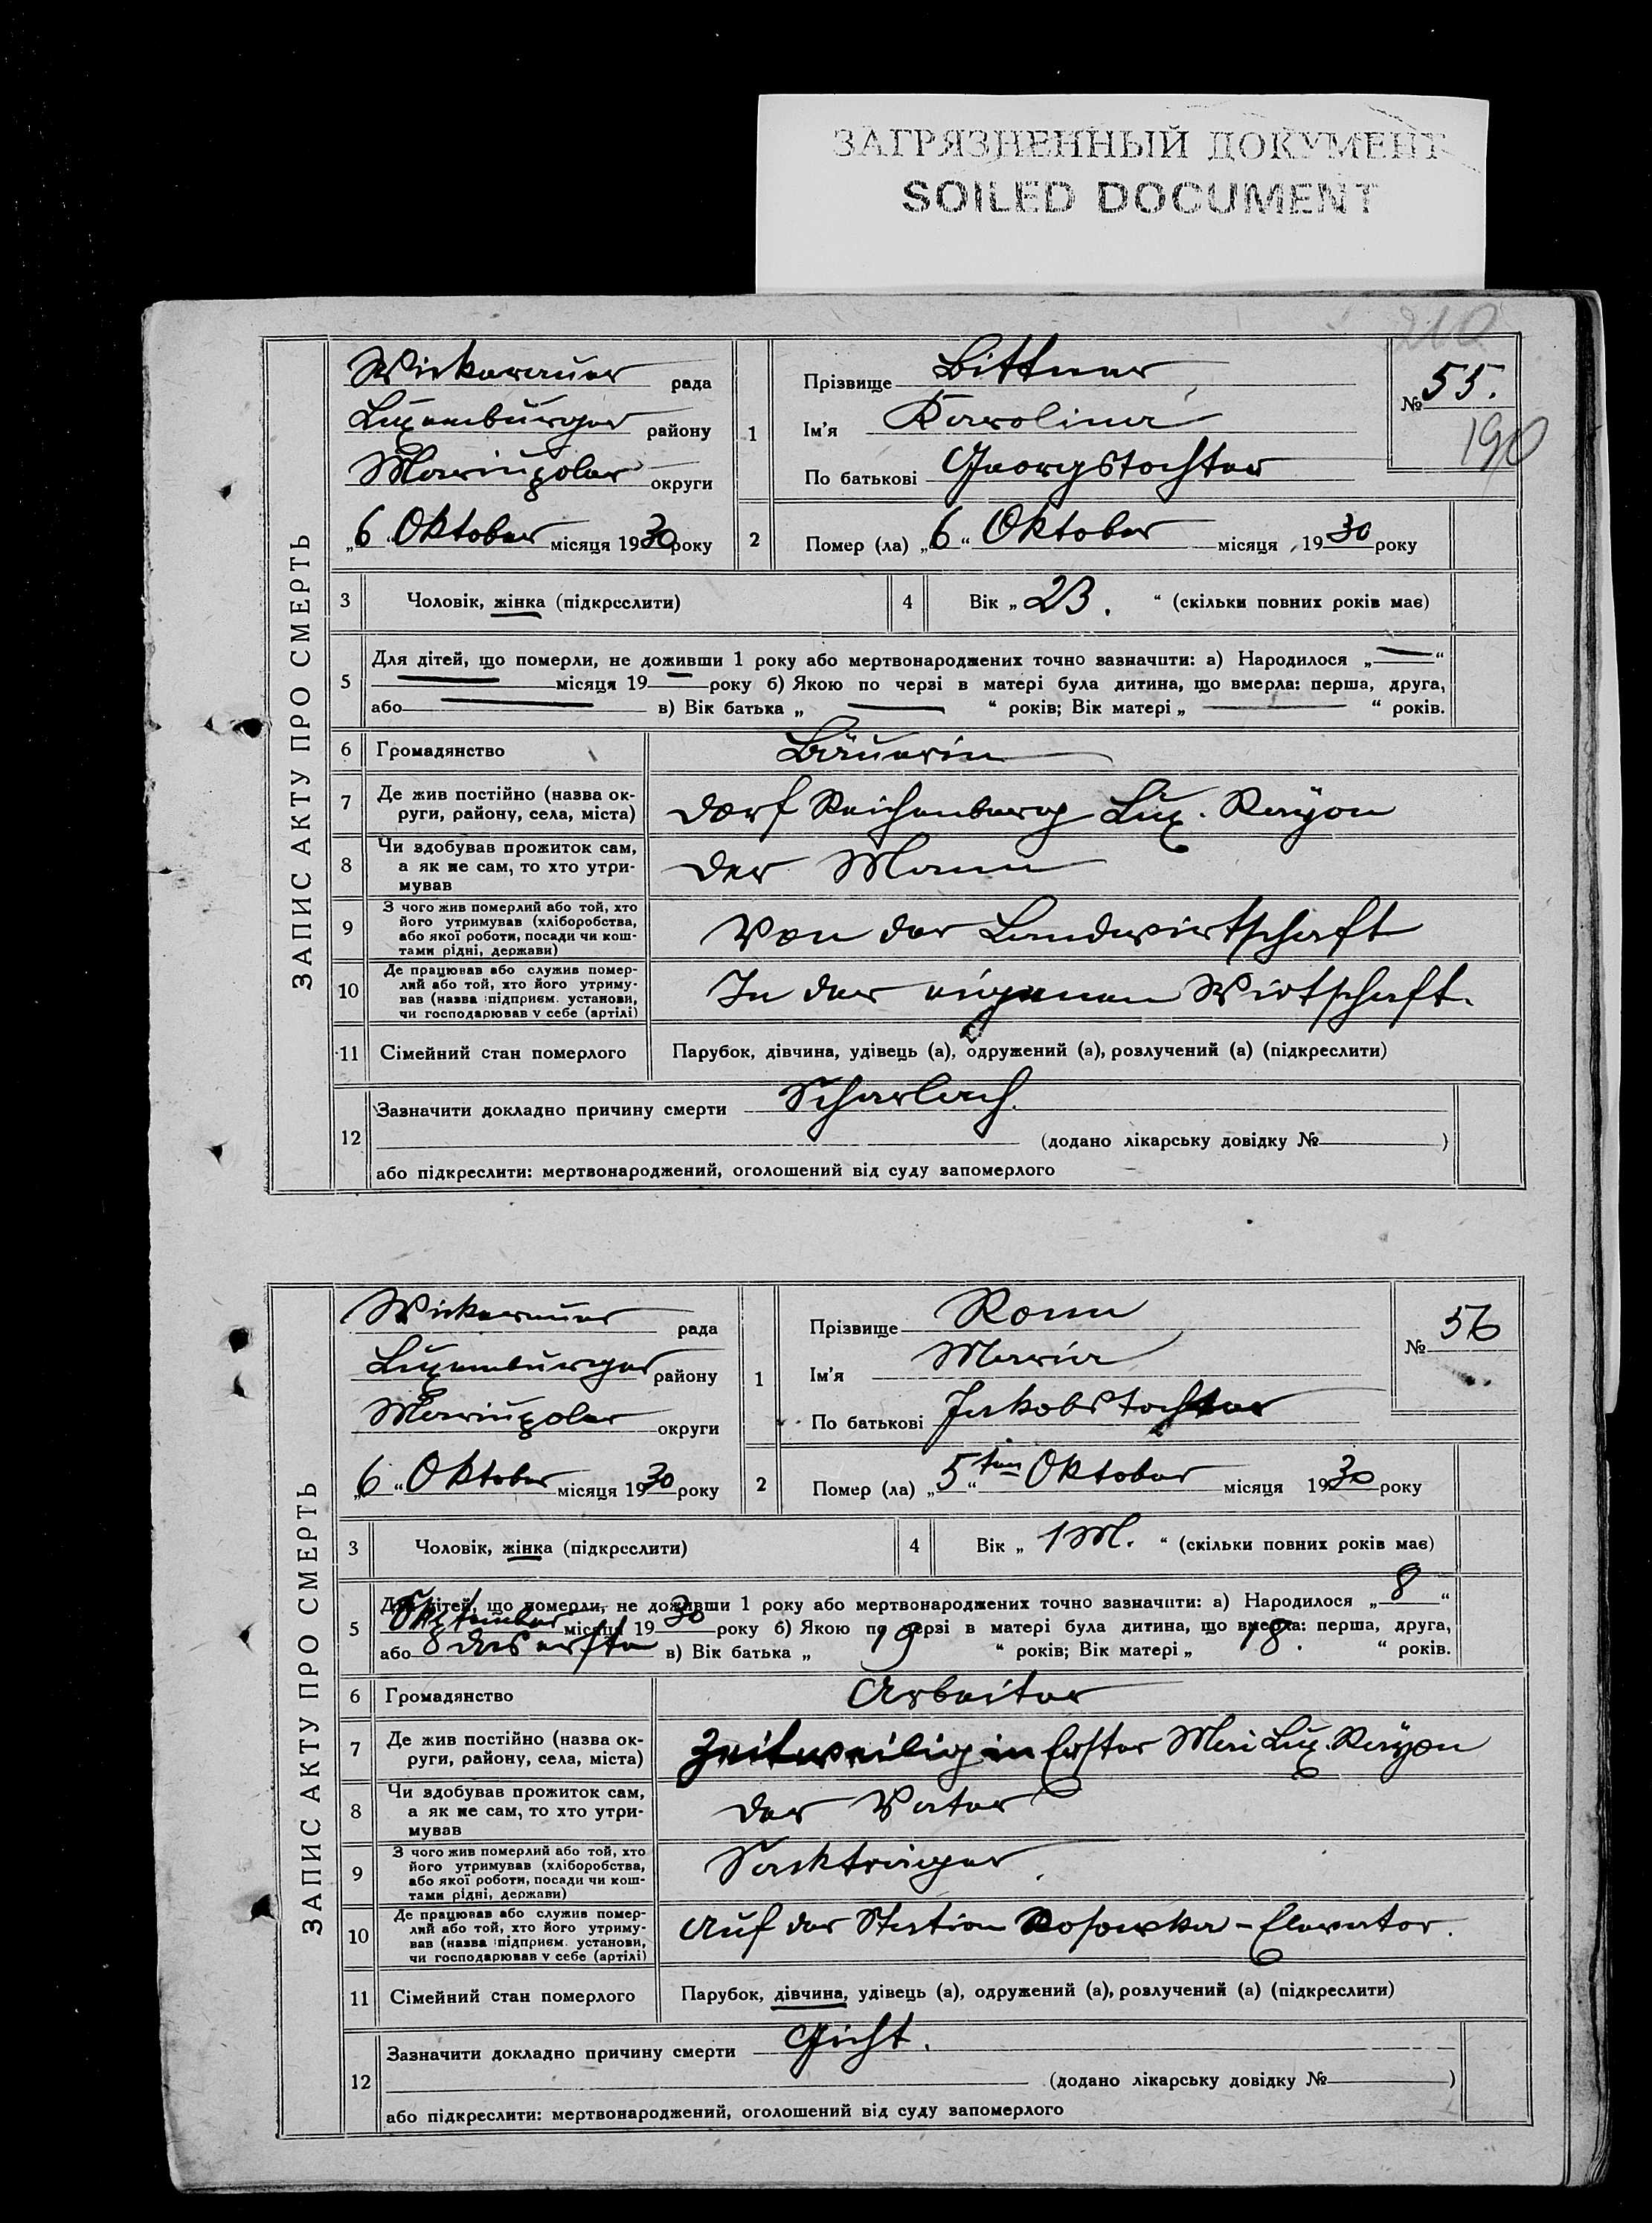 ЗАГРЯЗНЕННЫЙ ДОКУМЕНТ
SOILED DOCUMENT
210
ЗАПИС АКТУ ПРО СМЕРТЬ
Wickerauer рада
Luxemburger району
Mariupoler округи
„6“ Oktober місяця 1930 року
1
Прізвище Bittner
Ім'я Karolina
По батькові Georgstochter
№ 55.
190
2
Помер (ла) „6“ Oktober місяця 1930 року
3 Чоловік, жінка (підкреслити)
4 Вік „23.“ (скільки повних років має)
5 Для дітей, що померли, не доживши 1 року або мертвонароджених точно зазначити: а) Народилося „—“
— місяця 19— року б) Якою по черзі в матері була дитина, що вмерла: перша, друга,
або — в) Вік батька „ — “ років; Вік матері „ — “ років.
6 Громадянство Bäuerin
7 Де жив постійно (назва округи, району, села, міста) Dorf Reichenberg Lux. Rayon
8 Чи здобував прожиток сам, а як не сам, то хто утримував der Mann
9 З чого жив померлий або той, хто його утримував (хліборобства, або якої роботи, посади чи коштами рідні, держави) Von der Landwirtschaft
10 Де працював або служив померлий або той, хто його утримував (назва підприєм. установи, чи господарював у себе (артілі) In der eigenen Wirtschaft.
11 Сімейний стан померлого Парубок, дівчина, удівець (а), одружений (а), розлучений (а) (підкреслити)
12 Зазначити докладно причину смерти Scharlach.
(додано лікарську довідку № )
або підкреслити: мертвонароджений, оголошений від суду запомерлого
ЗАПИС АКТУ ПРО СМЕРТЬ
Wickerauer рада
Luxemburger району
Mariupoler округи
„6“ Oktober місяця 1930 року
1
Прізвище Ronn
Ім'я Maria
По батькові Jakobstochter
№ 56
2
Помер (ла) „5“ten Oktober місяця 1930 року
3 Чоловік, жінка (підкреслити)
4 Вік „1 M.“ (скільки повних років має)
5 Для дітей, що померли, не доживши 1 року або мертвонароджених точно зазначити: а) Народилося „8“
місяця 1930 року б) Якою по черзі в матері була дитина, що вмерла: перша, друга,
або das erste в) Вік батька „19“ років; Вік матері „18.“ років.
6 Громадянство Arbeiter
7 Де жив постійно (назва округи, району, села, міста) Zeitweilig in Erster Mai Lux. Rayon
8 Чи здобував прожиток сам, а як не сам, то хто утримував der Vater
9 З чого жив померлий або той, хто його утримував (хліборобства, або якої роботи, посади чи коштами рідні, держави) Sackträger
10 Де працював або служив померлий або той, хто його утримував (назва підприєм. установи, чи господарював у себе (артілі) Auf der Station Rosowka - Elewator.
11 Сімейний стан померлого Парубок, дівчина, удівець (а), одружений (а), розлучений (а) (підкреслити)
12 Зазначити докладно причину смерти Gicht.
(додано лікарську довідку № )
або підкреслити: мертвонароджений, оголошений від суду запомерлого